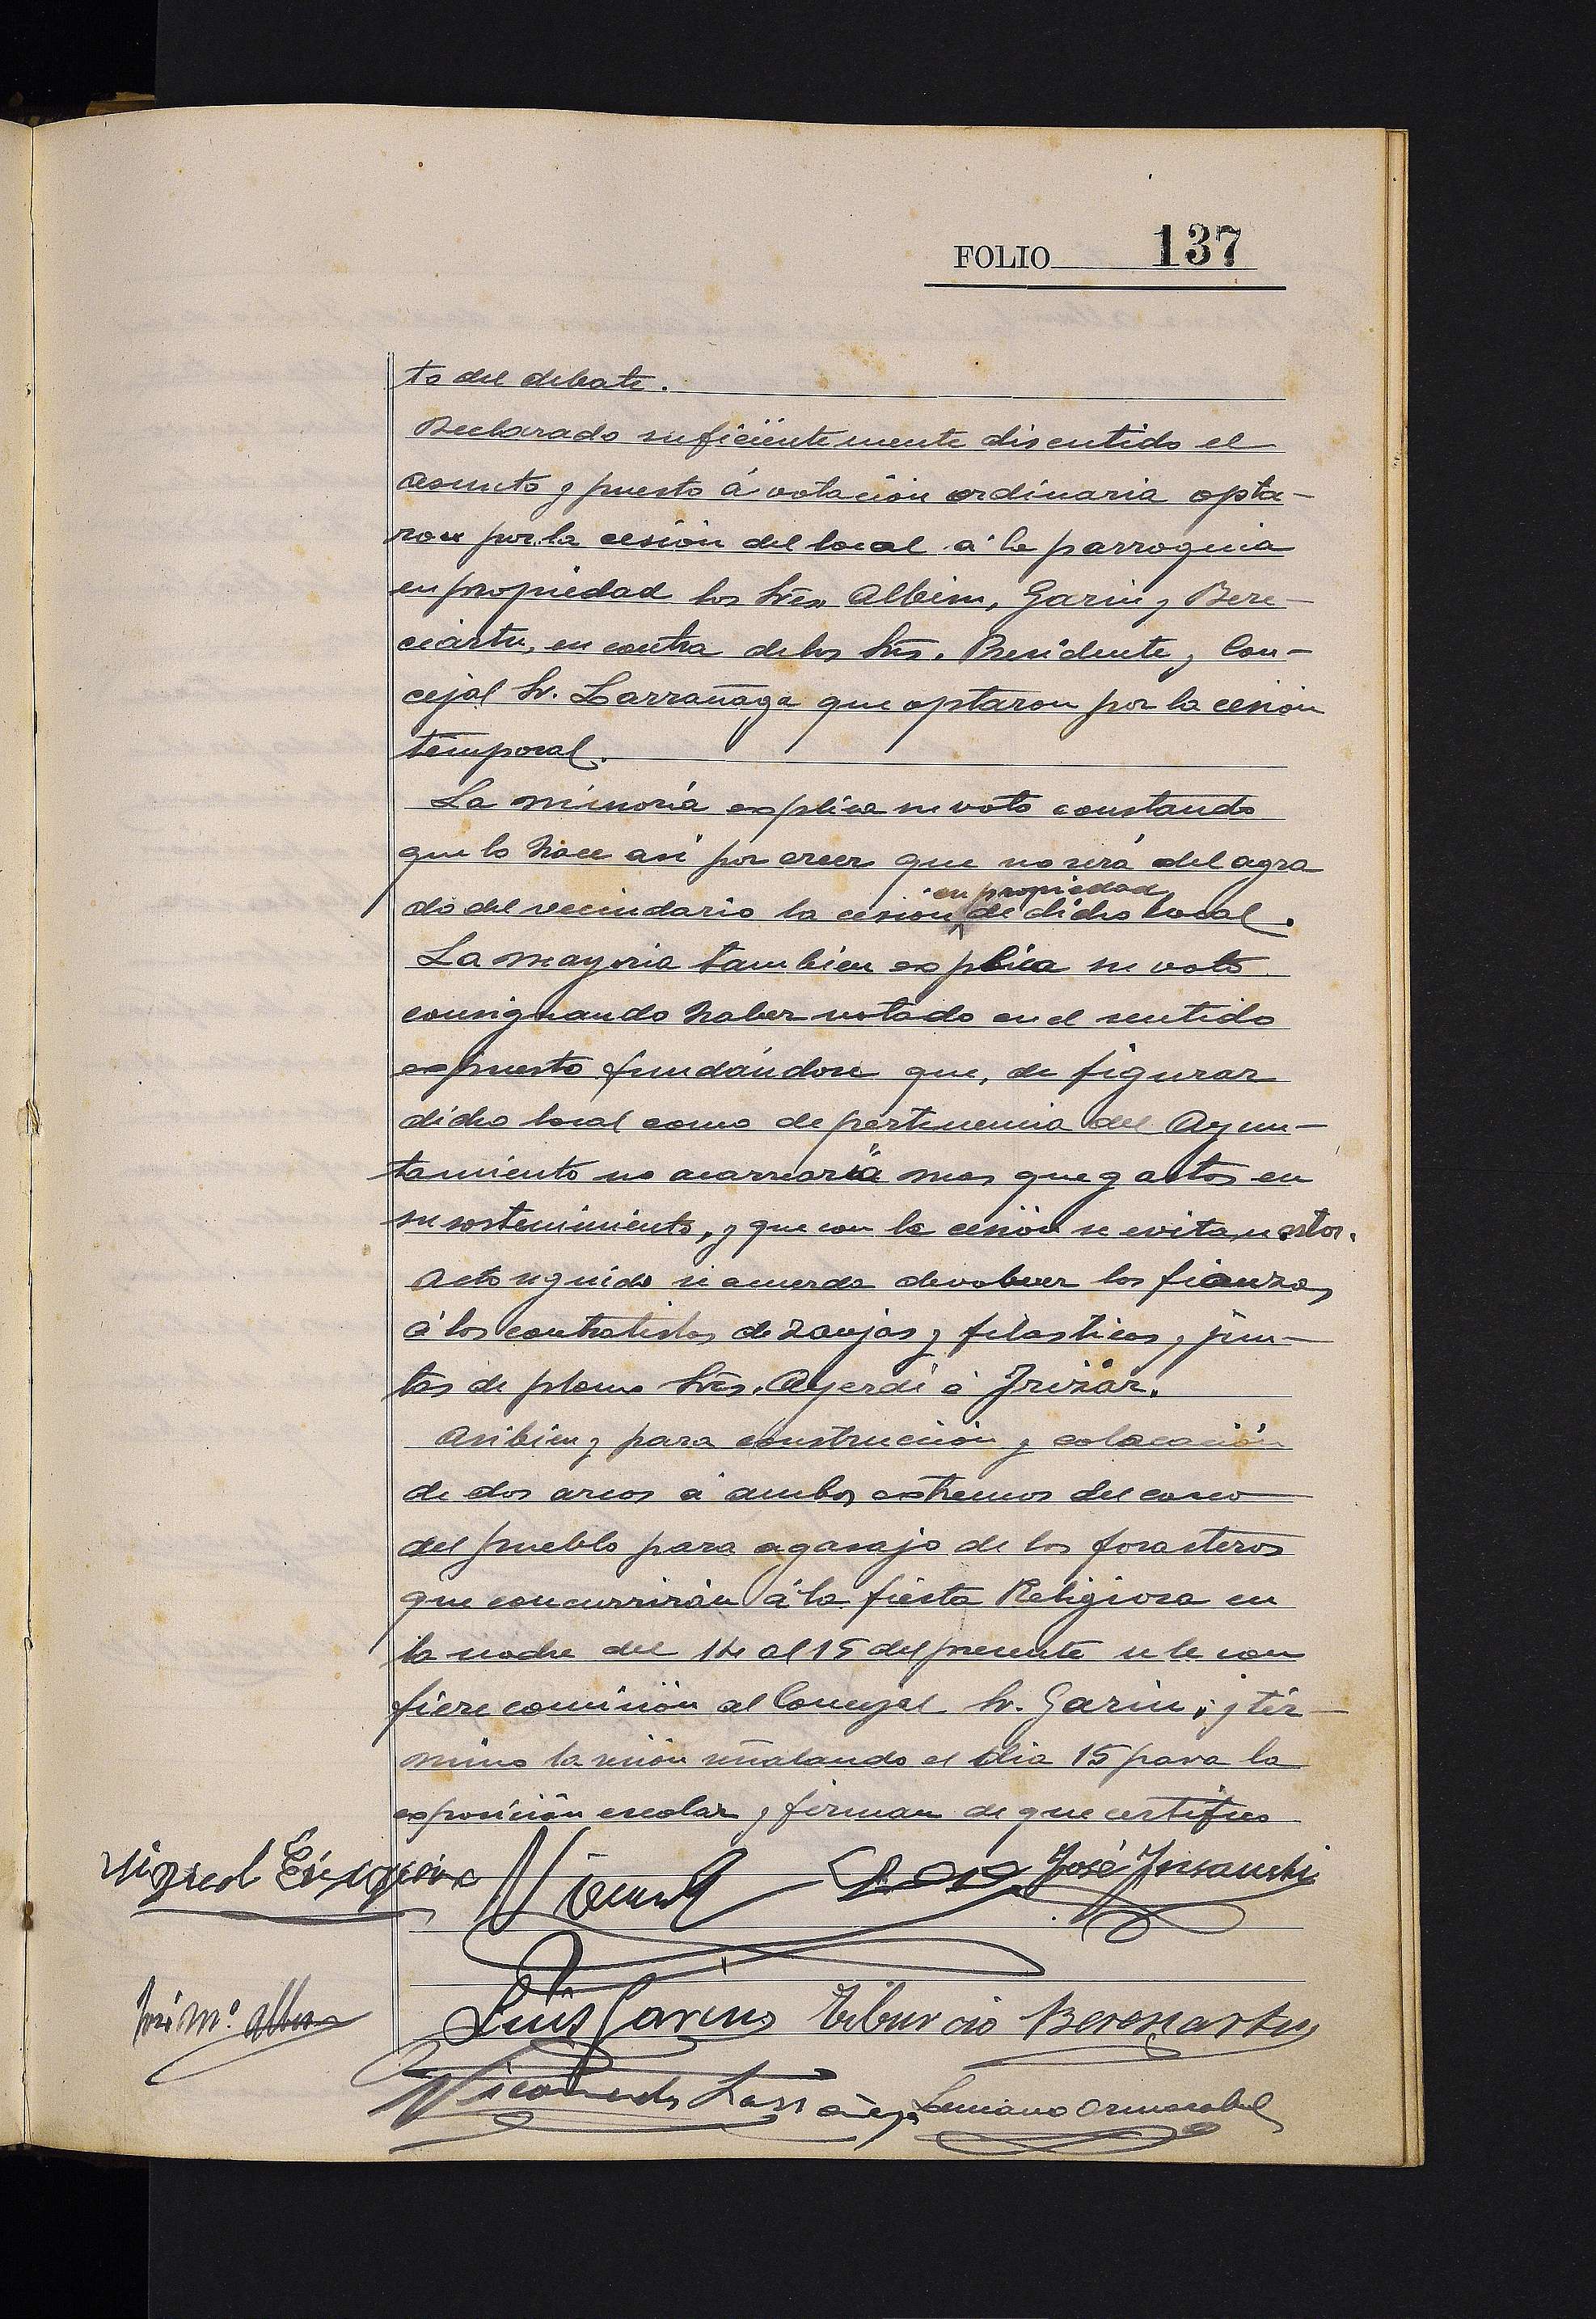 FOLIO 137
to del debate.
Declarado suficientemente discutido el
asunto y puesto á votación ordinaria opta-
ron por la cesión del local á la parroquia
en propiedad los Sres Albisu, Garin y Bere-
ciartu, en contra de los Srs. Presidente y Con-
cejal Sr. Larrañaga que optaron por la cesión
temporal.
La minoria esplica su voto constando
que lo hace asi por creer que no será del agra
do del vecindario la cesión en propiedad de dicho local.
La mayoria tambien esplica su voto
consignando haber votado en el sentido
espuesto fundándose que, de figurar
dicho local como de pertenencia del Ayun-
tamiento no acarrearia mas que gastos en
su sostenimiento, y que con la cesión se evitan estos.
Acto seguido se acuerda devolver las fianzas
á los contratistas de zanjas y filasticas y jun-
tas de plomo Sres. Ayerdi é Irizar.
Asibien y para construcción y colocación
de dos arcos á ambos estremos del casco
del pueblo para agasajo de los forasteros
que concurrirán á la fiesta Religiosa en
la noche del 14 al 15 del presente se le con
fiere comisión al Concejal Sr. Garin; y tér-
mino la sesión señalando el dia 15 para la
esposición escolar y firman de que certifico
José Insausti
José Mª Albisu
Luis Garin Tiburcio Bereciartu
Nicomedes Larrañaga